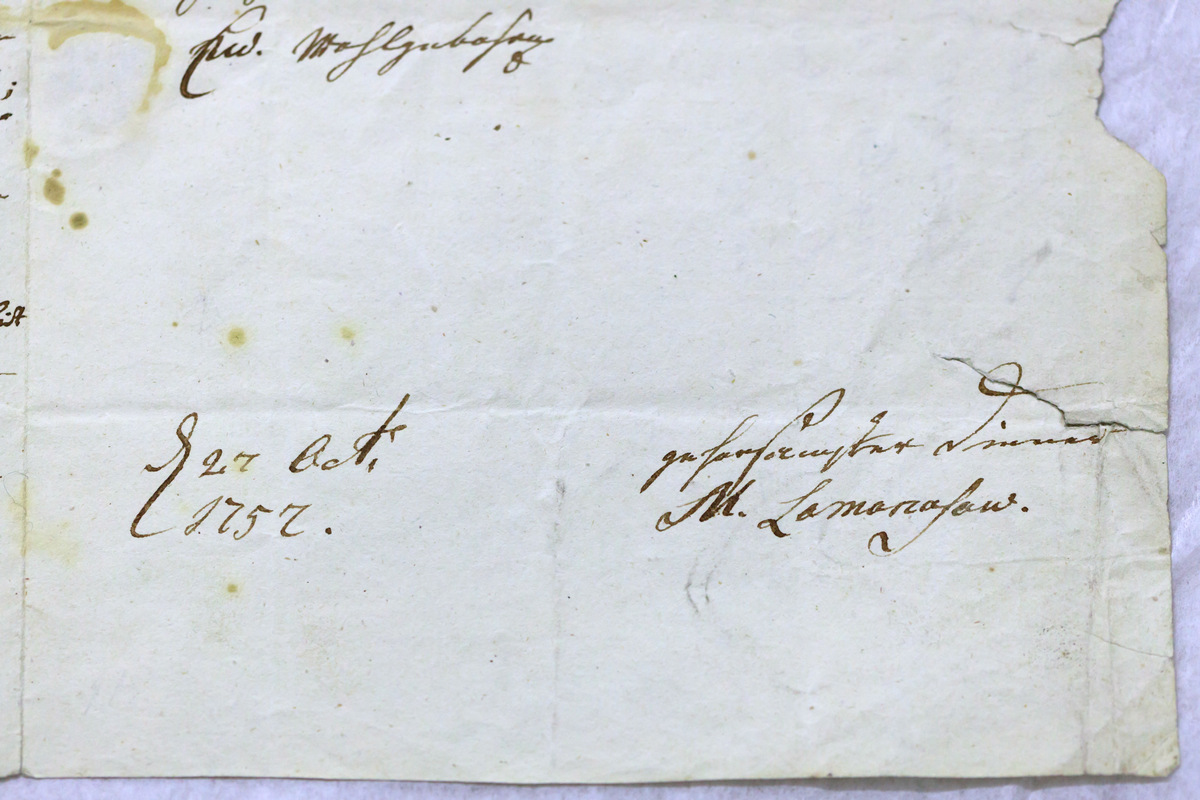 Ew. Wohlgebohrn
d 27 Oct.
1757.
gehorsamster Diener
M. Lomonosow.